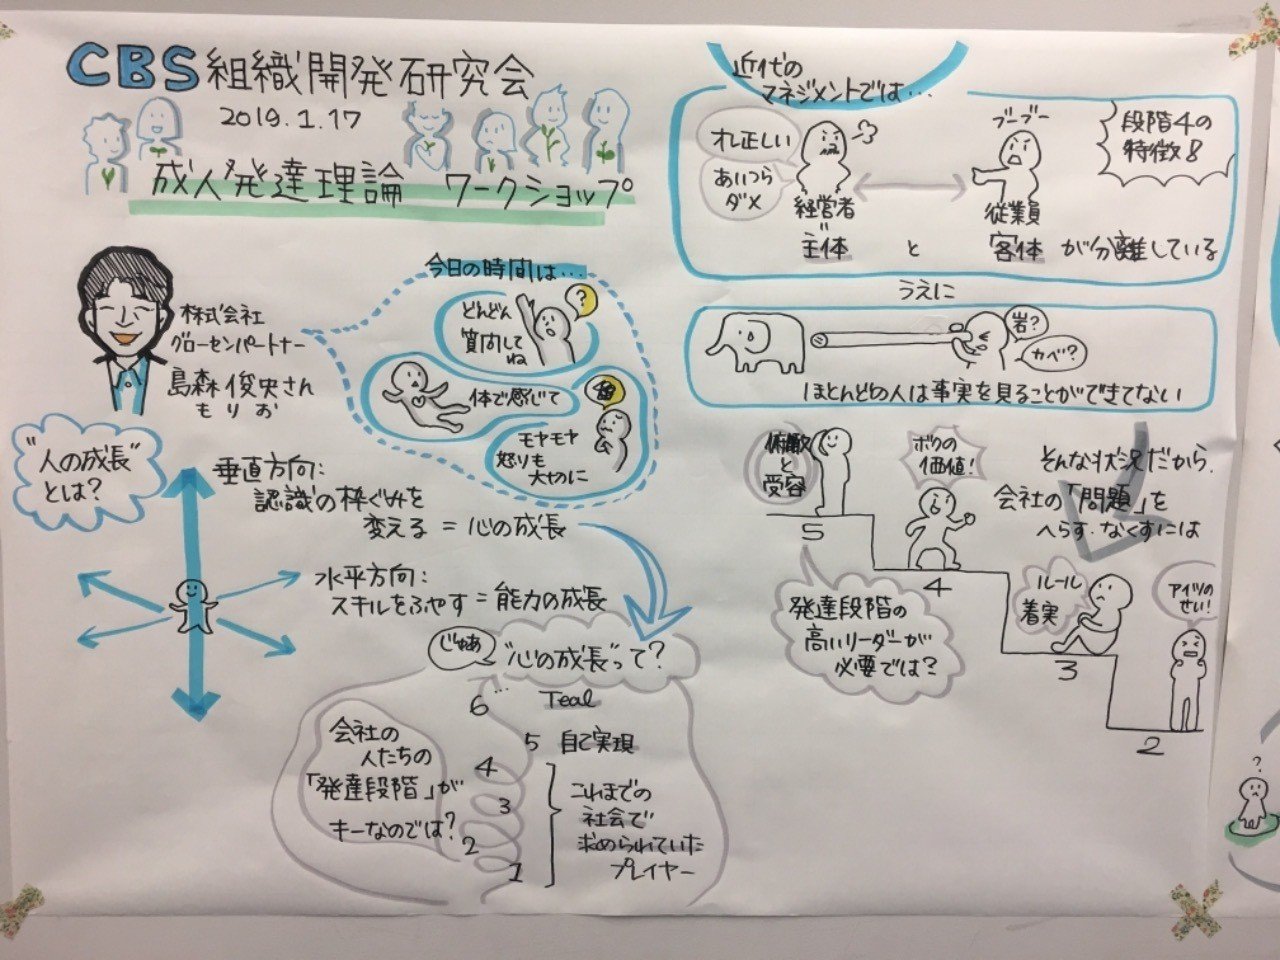 CBS 組織開発研究会
2019.1.17
成人発達理論 ワークショップ
株式会社
グローセンパートナー
島森俊央さん
もりお
今日の時間は…
どんどん
質問して
ね
?
体で感じて
モヤモヤ
怒りも
大切に
"人の成長"
とは?
垂直方向:
認識の枠ぐみを
変える = 心の成長
水平方向:
スキルをふやす = 能力の成長
じゃあ
"心の成長"って?
6 … Teal
5 自己実現
4
3
2
1
これまでの
社会で
求められていた
プレイヤー
会社の
人たちの
「発達段階」が
キーなのでは?
近代の
マネジメントでは…
オレ正しい
あいつら
ダメ
ブーブー
段階4の
特徴8
経営者
従業員
主体 と 客体 が分離している
うえに
岩?
カベ?
ほとんどの人は事実を見ることができてない
俯瞰
と
受容
ボクの
価値!
そんな状況だから、
会社の「問題」を
へらす、なくすには
5
4
ルール
着実
アイツの
せい!
3
2
発達段階の
高いリーダーが
必要では?
?